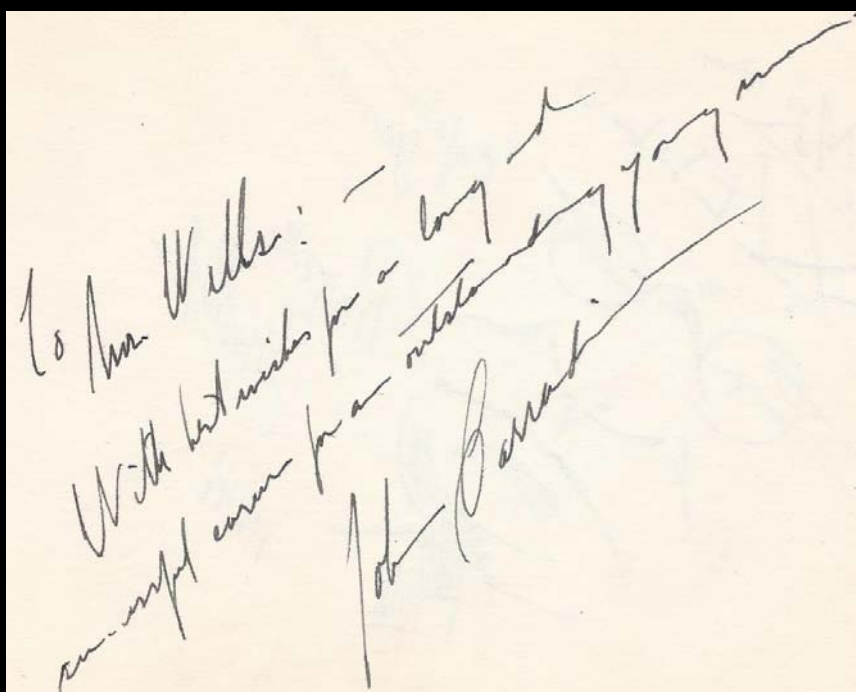 To Mr. Wills: —
With best wishes for a long and
successful career for an outstanding young man
John